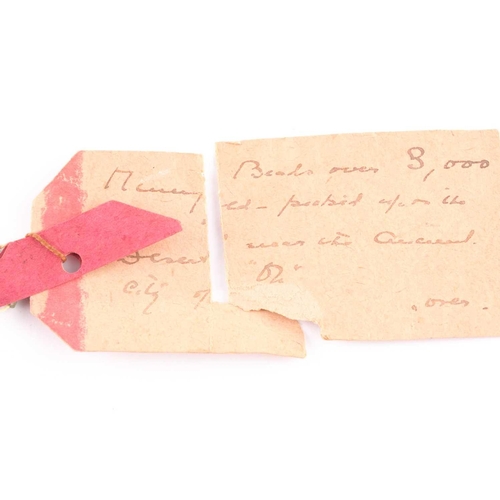 Mummy Beads over 3,000
old - picked up in the
Desert near the Ancient
City of "
over.